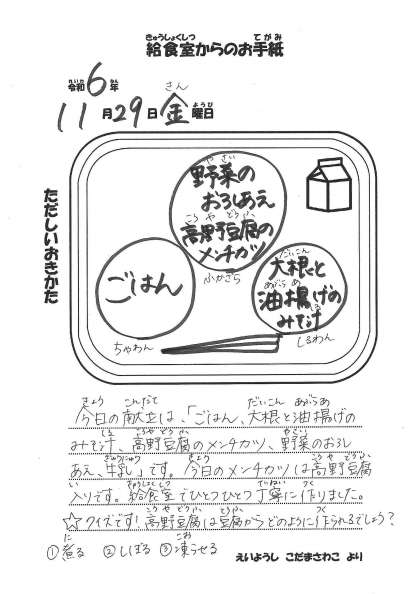 きゅうしょくしつ てがみ
給食室からのお手紙
れいわ ねん
令和6年
さん
がつ にち ようび
11月29日金曜日
ただしいおきかた
やさい
野菜の
おろしあえ
こうや どうふ
高野豆腐の
メンチカツ
ふかざら
ごはん
ちゃわん
だいこん
大根と
あぶらあ
油揚げの
みそ汁
しるわん
きょう こんだて だいこん あぶらあ
今日の献立は、「ごはん、大根と油揚げの
しる こうや どうふ やさい
みそ汁、高野豆腐のメンチカツ、野菜のおろし
ぎゅうにゅう きょう こうや どうふ
あえ、牛乳」です。今日のメンチカツは高野豆腐
い きゅうしょくしつ ていねい つく
入りです。給食室でひとつひとつ丁寧に作りました。
こうや どうふ とうふ つく
☆クイズです!高野豆腐は豆腐からどのように作られるでしょう?
に こお
①煮る ②しぼる ③凍らせる
えいようし こだまさわこ より